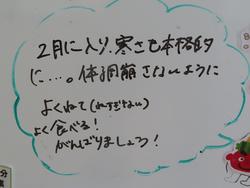 2月に入り、寒さも本格的
に…。体調崩さないように
よくねて(ねすぎない)
よく食べる!
がんばりましょう!
分